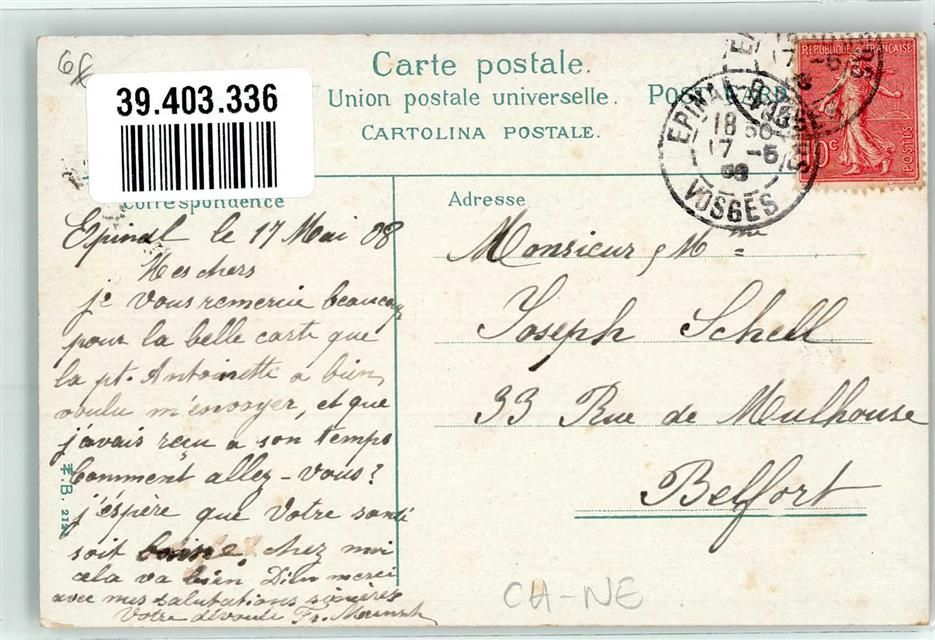 6f
39.403.336
Carte postale.
Union postale universelle. POSTCARD
CARTOLINA POSTALE.
Correspondence
Adresse
REPUBLIQUE FRANÇAISE
10c
POSTES
EPINAL
18 30
17 -5
08
VOSGES
Epinal le 17 Mai 08
Mes chers
je vous remercie beaucoup
pour la belle carte que
la pt. Antoinette a bien
voulu m'envoyer, et que
j'avais reçu a son temps
Comment allez-vous?
j'éspère que votre santé
soit bonne. chez moi
cela va bien, Dieu merci
avec mes salutations sincères
Votre dévoué Fr.
Z.B.
Monsieur & Mme
Joseph Schell
33 Rue de Mulhouse
Belfort
CH-NE